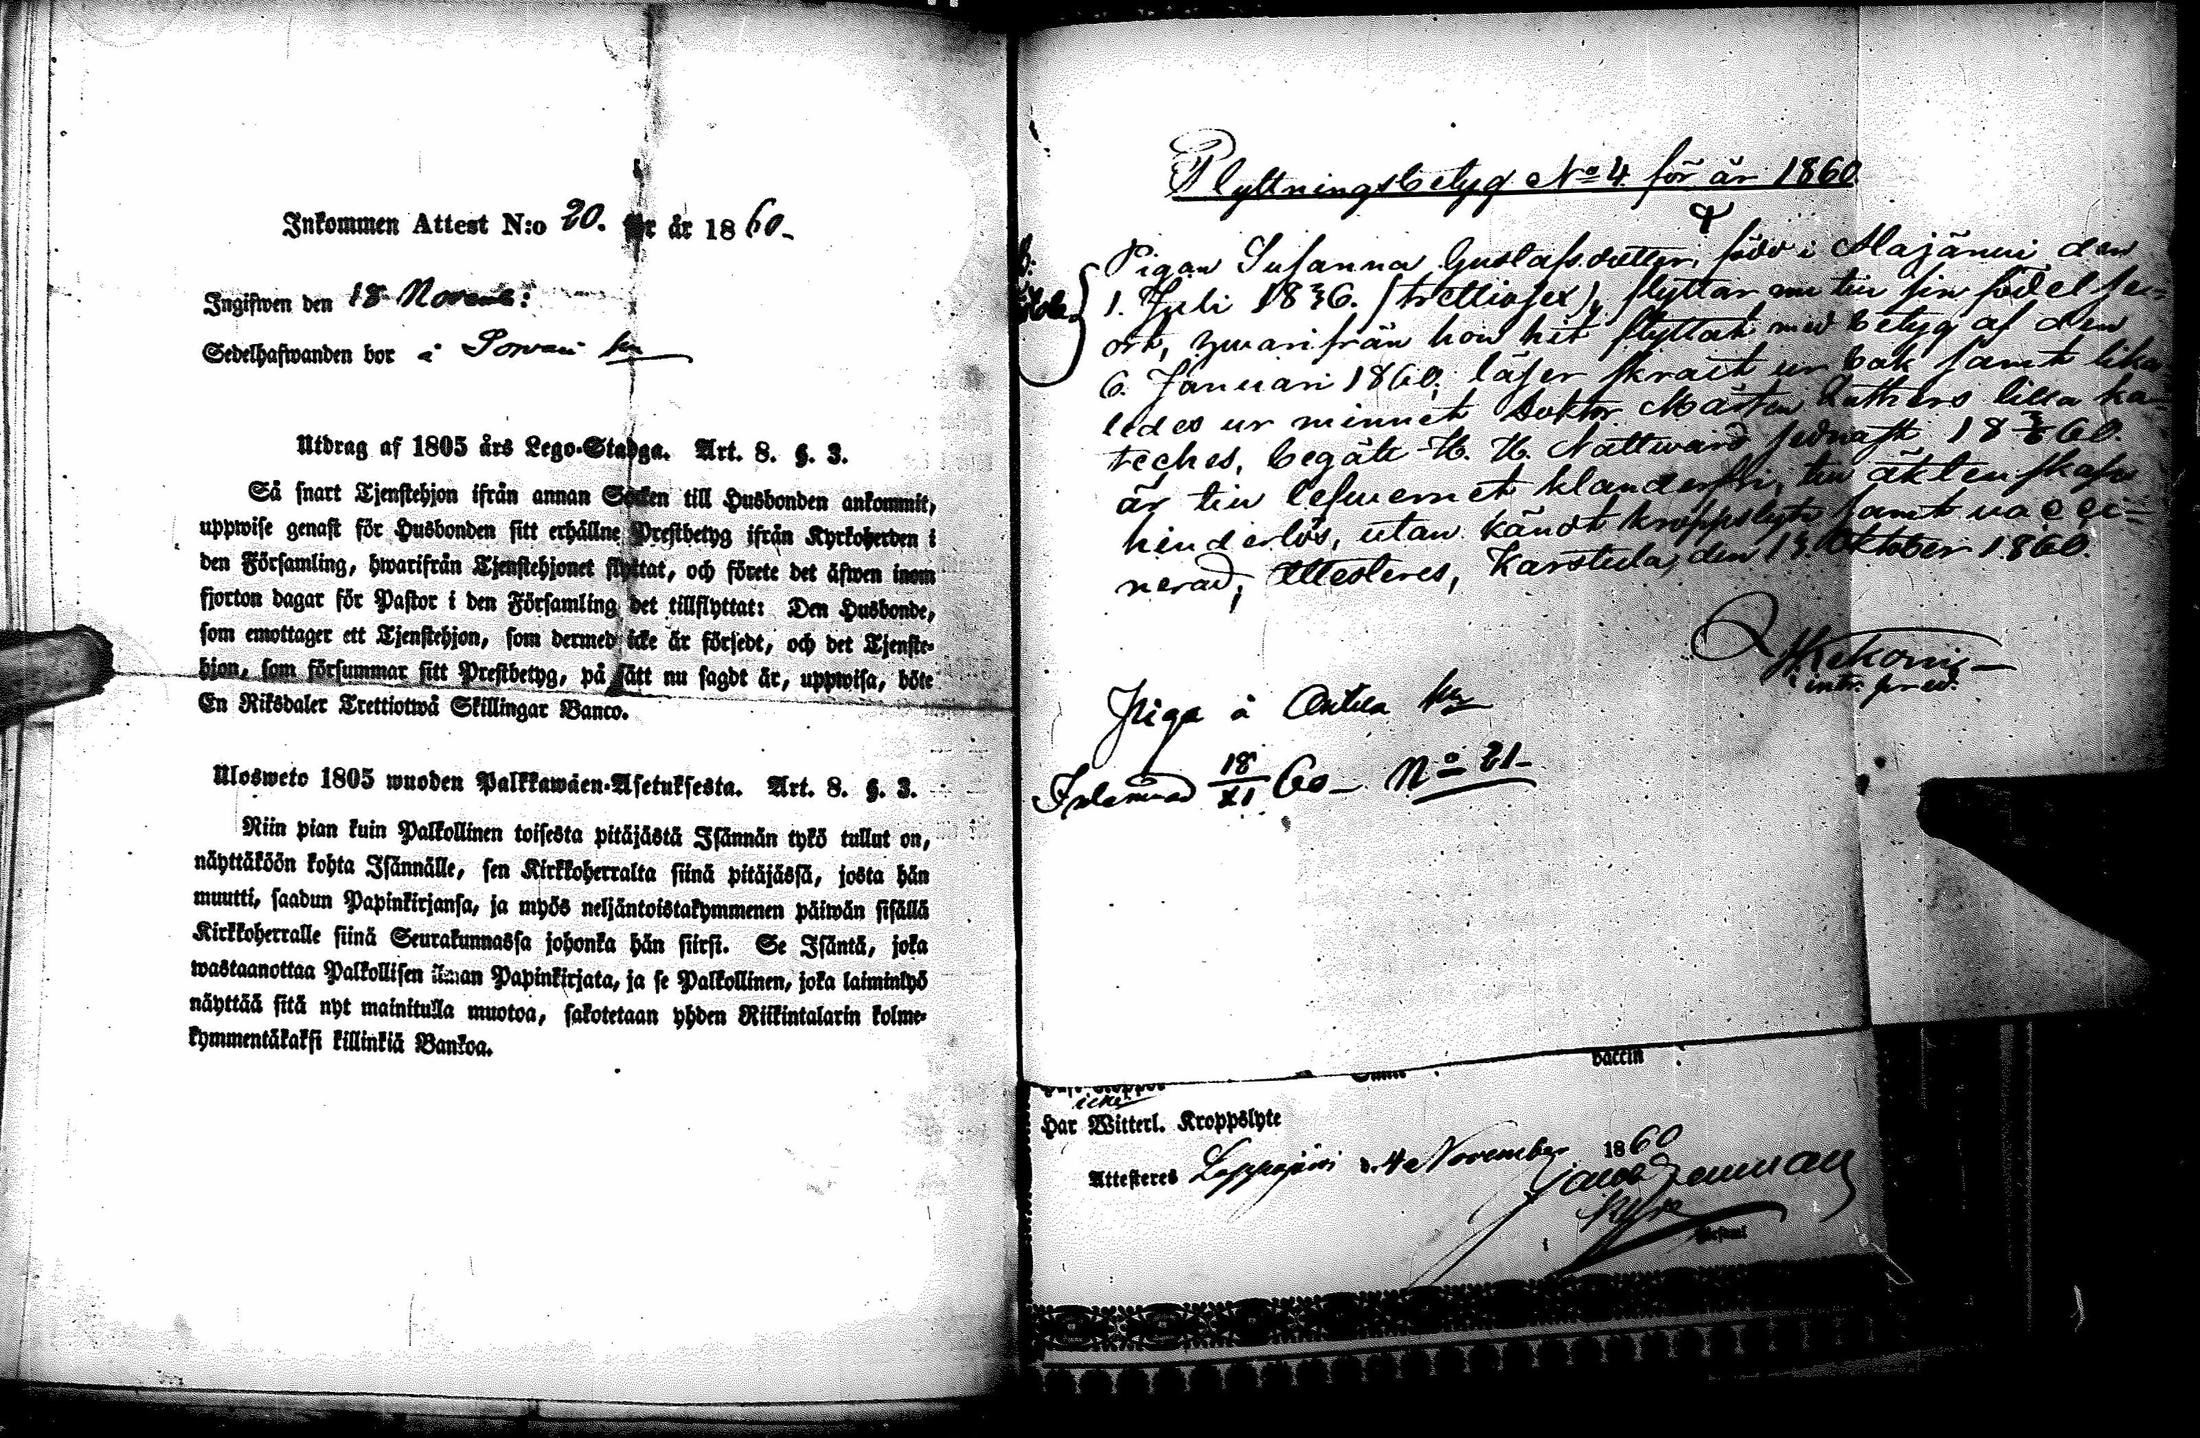 Inkommen Attest N:o 20. för år 1860.
Ingifwen den 18 Novemb:
Sedelhafwanden bor å
Utdrag af 1805 års Lego-Stadga. Art. 8. §. 3.
Så snart Tjenstehjon ifrån annan Socken till Husbonden ankommit,
uppwise genast för Husbonden sitt erhållne Prestbetyg ifrån Kyrkoherden i
den Församling, hwarifrån Tjenstehjonet flyttat, och förete det äfwen inom
fjorton dagar för Pastor i den Församling det tillflyttat: Den Husbonde,
som emottager ett Tjenstehjon, som dermed icke är försedt, och det Tjenste-
hjon, som försummar sitt Prestbetyg, på sätt nu sagdt är, uppwisa, böte
En Riksdaler Trettiotwå Skillingar Banco.
Ulosweto 1805 wuoden Palkkawäen-Asetuksesta. Art. 8. §. 3.
Niin pian kuin Palkollinen toisesta pitäjästä Isännän tykö tullut on,
näyttäköön kohta Isännälle, sen Kirkkoherralta siinä pitäjässä, josta hän
muutti, saadun Papinkirjansa, ja myös neljäntoistakymmenen päiwän sisällä
Kirkkoherralle siinä Seurakunnassa johonka hän siirsi. Se Isäntä, joka
wastaanottaa Palkollisen ilman Papinkirjata, ja se Palkollinen, joka laiminlyö
näyttää sitä nyt mainitulla muotoa, sakotetaan yhden Riikintalarin kolme-
kymmentäkaksi killinkiä Bankoa.
Flyttningsbetyg No 4 för år 1860
Pigan Susanna Gustafsdotter, född i Alajärvi den
1. Juli 1836. (trettiosex), flyttar nu till sin födelse-
ort, hwarifrån hon hit flyttat med betyg af den
6. Januari 1860, läser skrait ur bok samt lika-
ledes ur minnet Doktor Mårten Luthers lilla ka-
teches, begått H. H. Nattward sednast
är till lefwernet klanderfri, till äktenskap
hinderlös, utan kändt kroppslyte samt vacci-
nerad; Attesteres, Karstula, den 13 Oktober 1860.
Piga å Anttila
18/XI 60 No 21
vaccin
icke
Har Witterl. Kroppslyte
Attesteres Lappajärvi d. 4 November 1860